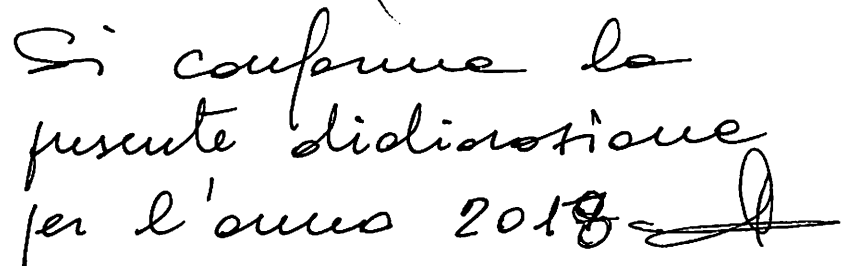 Si conferma la
presente dichiarazione
per l'anno 2018